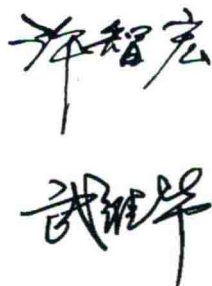 许智宏
武维华